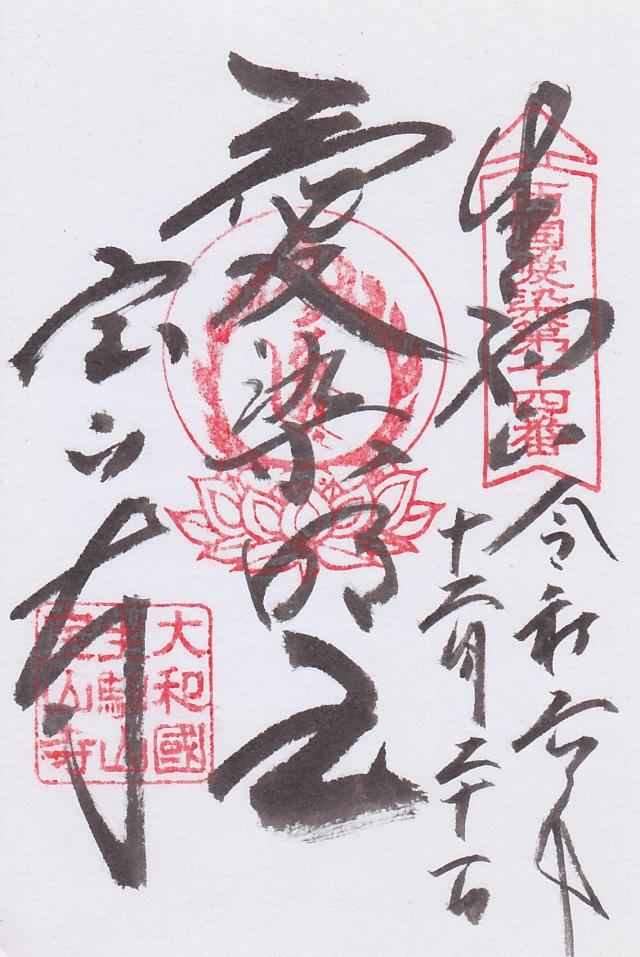 生駒山
西國愛染第十四番
令和六年
十二月二十一日
愛染明王
宝山寺
大和國
生駒山
宝山寺